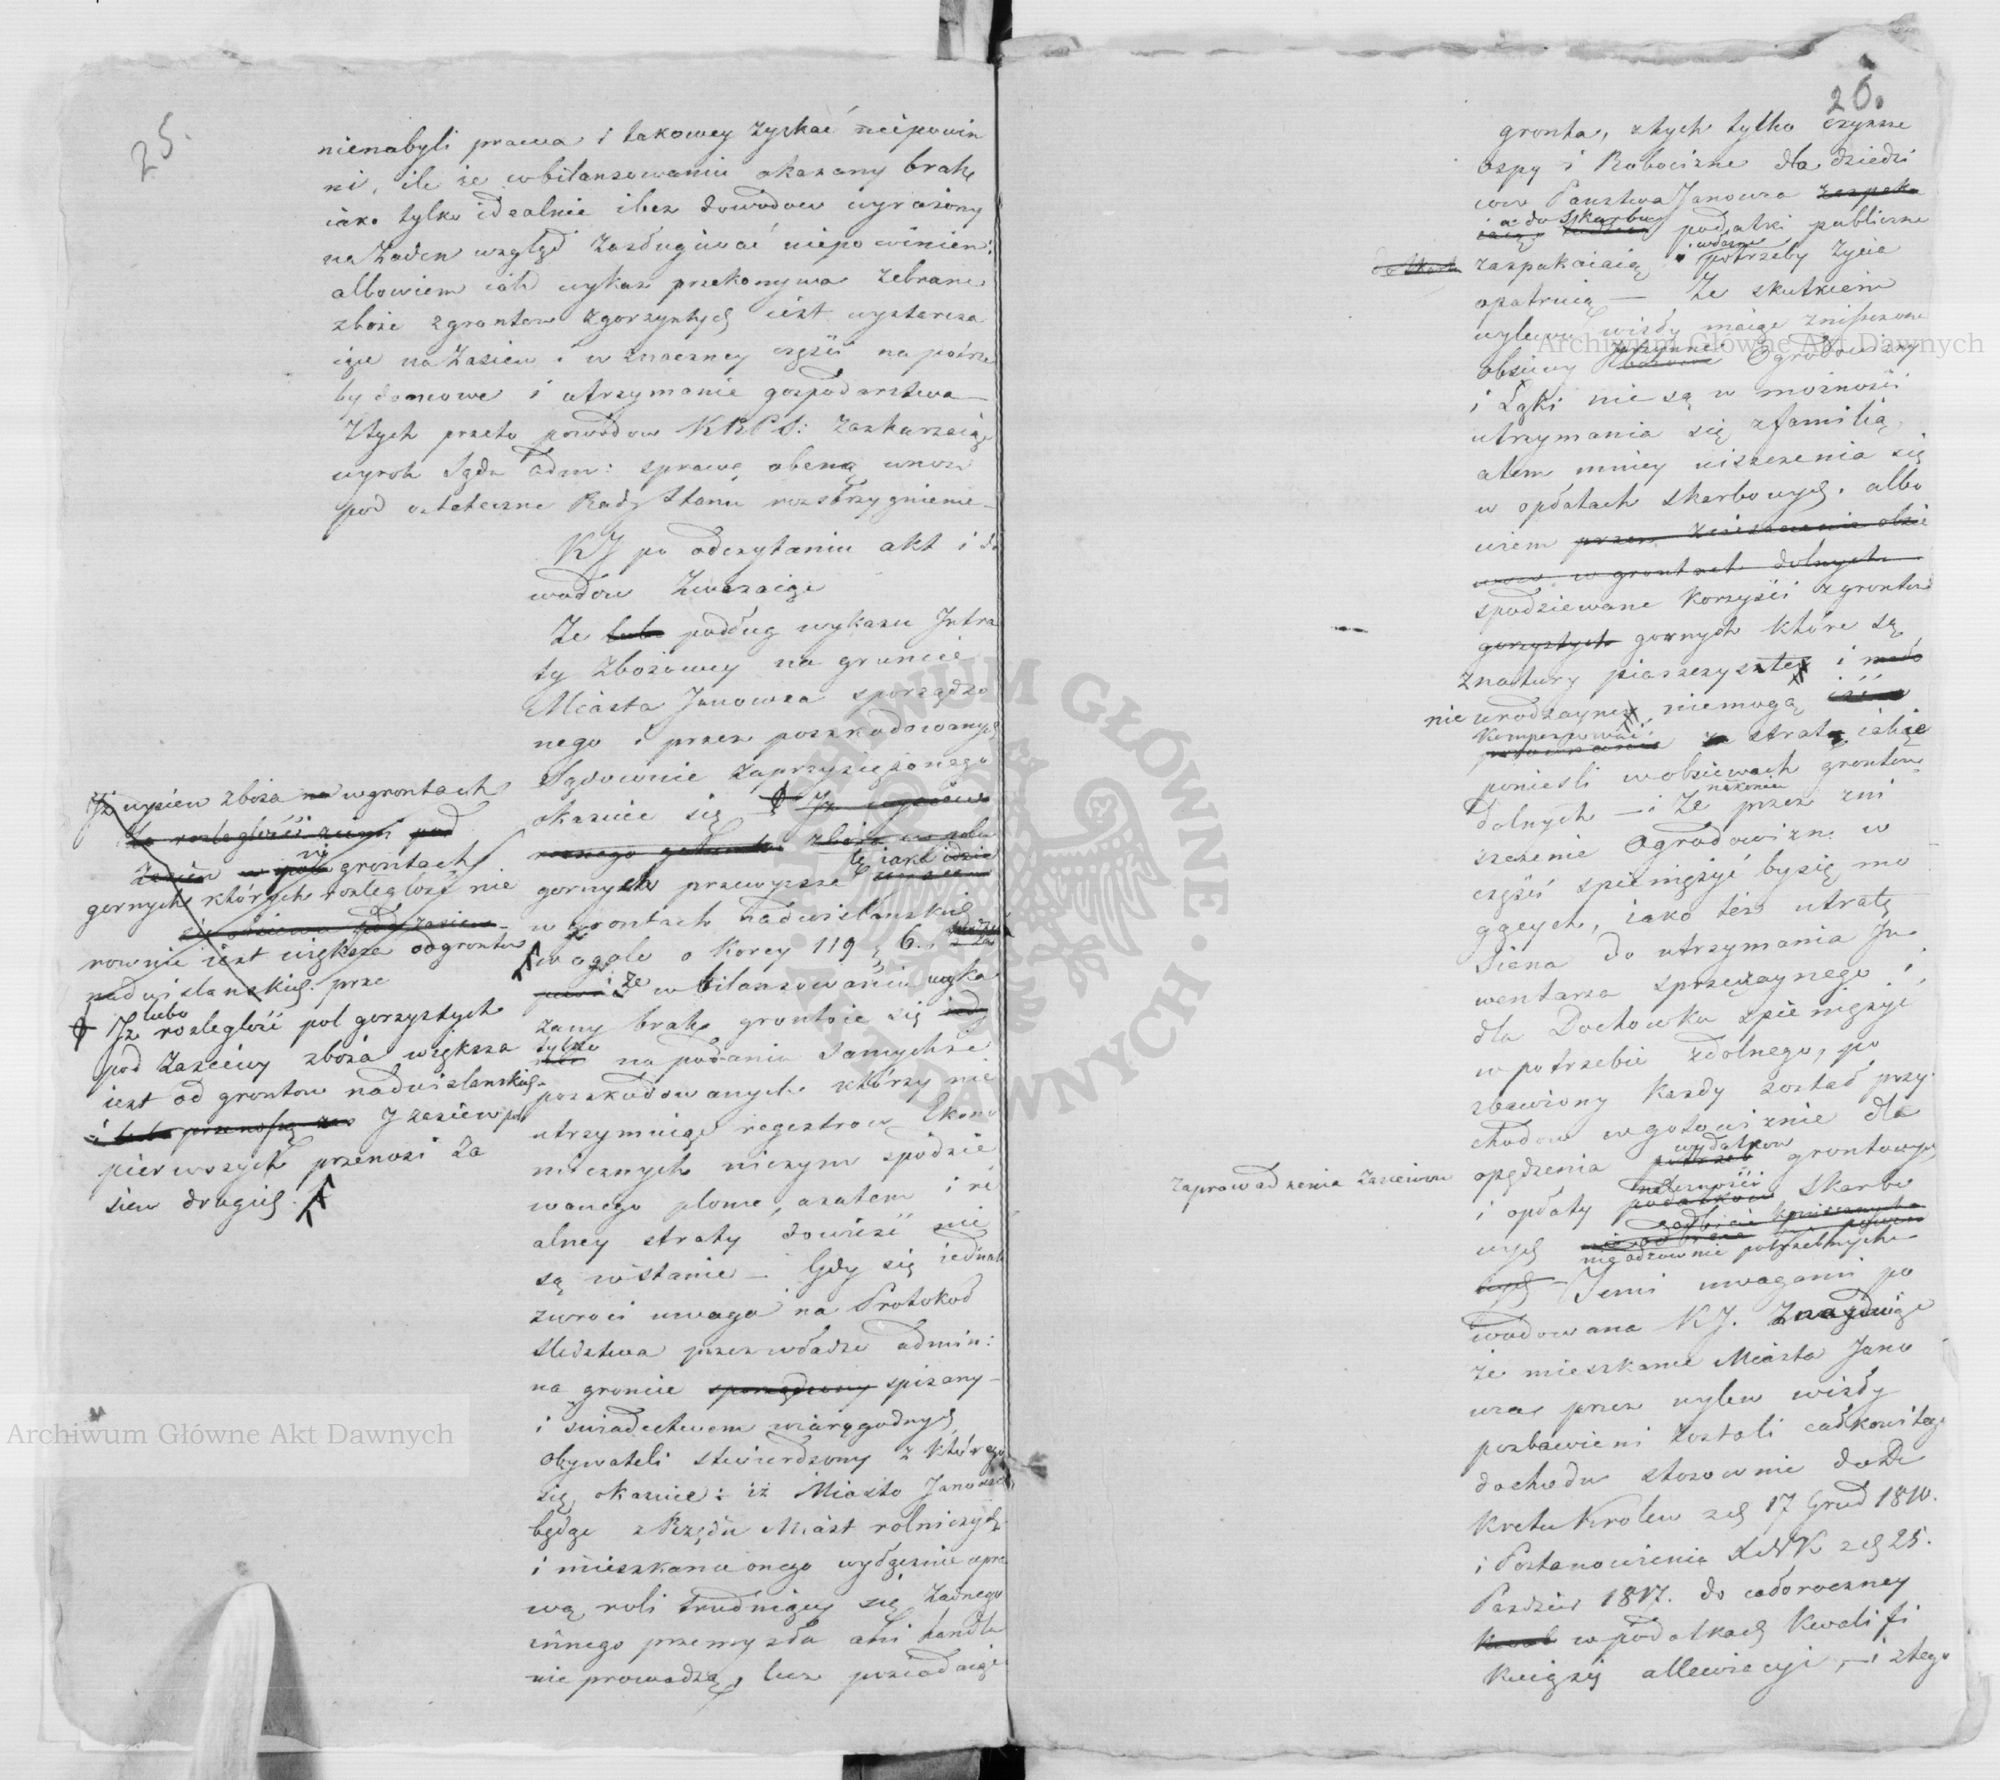 25.
nienabyli prawa i takowey zyskać niepowin
ni, ile że wbilansowaniu okazany brak
iako tylko idealnie ibez dowodow wyrażony
na Żaden wzgląd zasługiwać niepowinien:
albowiem iak wykaz przekonywa Zebrane
zboże zgrontow zgorzystych iest wystarcza
iące na Zasiew i w znaczney części na potrze
by domowe i utrzymanie gospodarstwa
Ztych przeto powodow KRPS: Zaskarzaiąc
wyrok Sądu adm: sprawę obecną wnosi
pod ostateczne Rady Stanu rozstrzygnienie
KJ po odczytaniu akt i do
wodow Zwazaiąc
Że lubo podług wykazu Intra
ty Zbożowey na gruncie
Miasta Janowca sporządzo
nego i przez poszkodowanych
Sądownie zaprzysiężonego
okazuie się
gornych przewyzsza
w grontach nadwislanskich
w ogole o korcy 119 g 6.
że w bilansowaniu wyka
zany brak grontuie się
tylko na podaniu samychże
poszkodowanych którzy nie
utrzymuiąc regestrow Ekono
micznych niczym spodzie
wanego plonu, azatem i re
alney straty dowieść nie
są wstanie — Gdy się iednak
zwroci uwaga na Protokoł
Sledztwa przez władze admin:
na gruncie sporządzony spisany
i swiadectwem wiarygodnych
obywateli stwierdzony z którego
się okazuie: iż Miasto Janowiec
będąc z Rzędu Miast rolniczych
i mieszkancu onego wyłącznie upra
wą roli trudniący się Żadnego
innego przemysłu ani handlu
nie prowadzą, lecz posiadaiąc
Iż wysiew zboża na wgrontach
grontach
gornych których rozległość nie
rownie iest większa od grontow
nadwislanskich prze
Iż lubo rozległość pol gorzystych
pod Zasiewy zboża większa
iest od grontow nadwislanskich
i lubo przenoszą zas I zasiew pol
pierwszych przenosi Za
siew drugich.
26.
gronta, ztych tylko czynsze
ospy i Robocizne dla dziedzi
cow Panstwa Janowca zaspoka
a do Skarbu podatki publiczne
do Skarb
zaspakaiaią własne potrzeby Życia
opatruią — Że skutkiem
wylewu wisły maiąc zniszczone
obsiewy Ogrodowizny
i Łąki nie są w możności
utrzymania się zfamilią
atem mniey uiszczenia się
w opłatach skarbowych. albo
wiem przez zniszczenie obsie
wow w grontach dolnych
spodziewane korzyści zgrontow
gorzystych gornych które są
znatury piaszczyste i mało
nie urodzayne, niemogą
kompesować stratę iakię
ponieśli wobsiewach grontow
dolnych — i Że nakoniec przez zni
szczenie Ogrodowizn w
części spieniężyć by się mo
gących, iako też utratę
Siana do utrzymania In
wentarza sprzężaynego i
dla Dochowku spieniężyć
w potrzebie zdolnego, po
zbawiony każdy został przy
chodow wgotowiznie dla
zaprowadzenia Zasiewow
opędzenia potrzeb wydatkow grontowych
i opłaty podatkow należności skarbo
wych
nieodzownie potrzebnych
Temi uwagami po
wodowana KJ. Znayduiąc
że mieszkance Miasta Jano
wca przez wylew wisły
pozbawieni zostali całkowitego
dochodu stosownie do De
kretu Krolew z d 17 Grud 1810.
i Postanowienia XNK z d 25.
Pazdzier 1817. do całoroczney
w podatkach kwalifi
kuiąsię allewiacyi, — i ztego